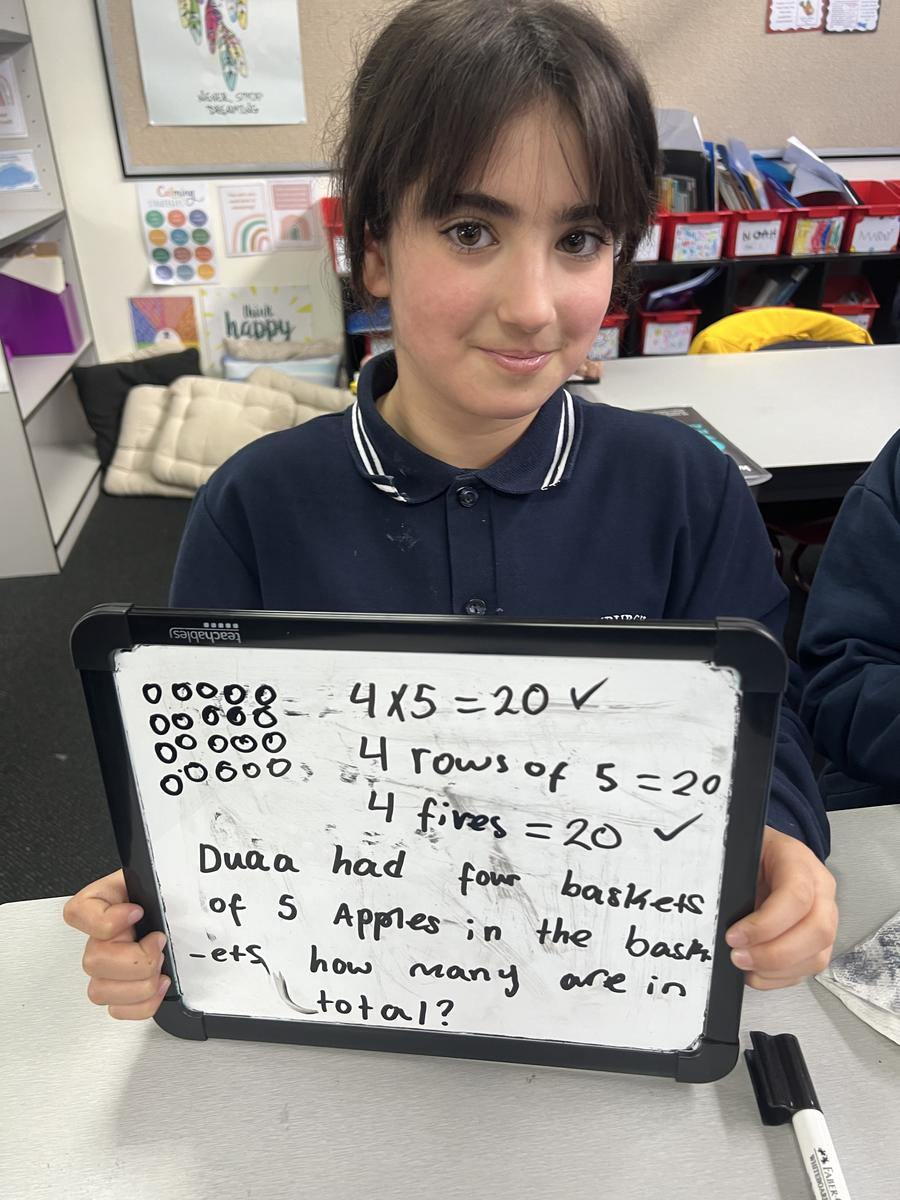 NEVER STOP
DREAMING
Calming
think
happy
NOAH
teachables
4x5 = 20 ✓
4 rows of 5 = 20
4 fives = 20 ✓
Duaa had four baskets
of 5 Apples in the bask
-ets, how many are in
total?